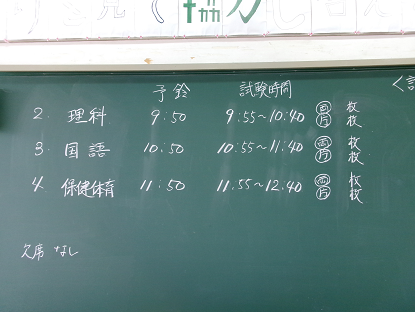 予鈴 試験時間
2. 理科 9:50 9:55～10:40 両 枚
片 枚
3. 国語 10:50 10:55～11:40 両 枚
片 枚
4. 保健体育 11:50 11:55～12:40 両 枚
片 枚
欠席 なし